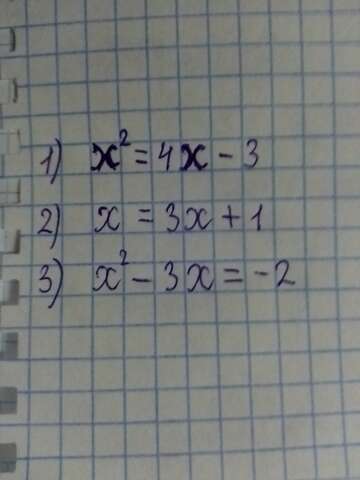 1) x² = 4x - 3
2) x = 3x + 1
3) x² - 3x = -2